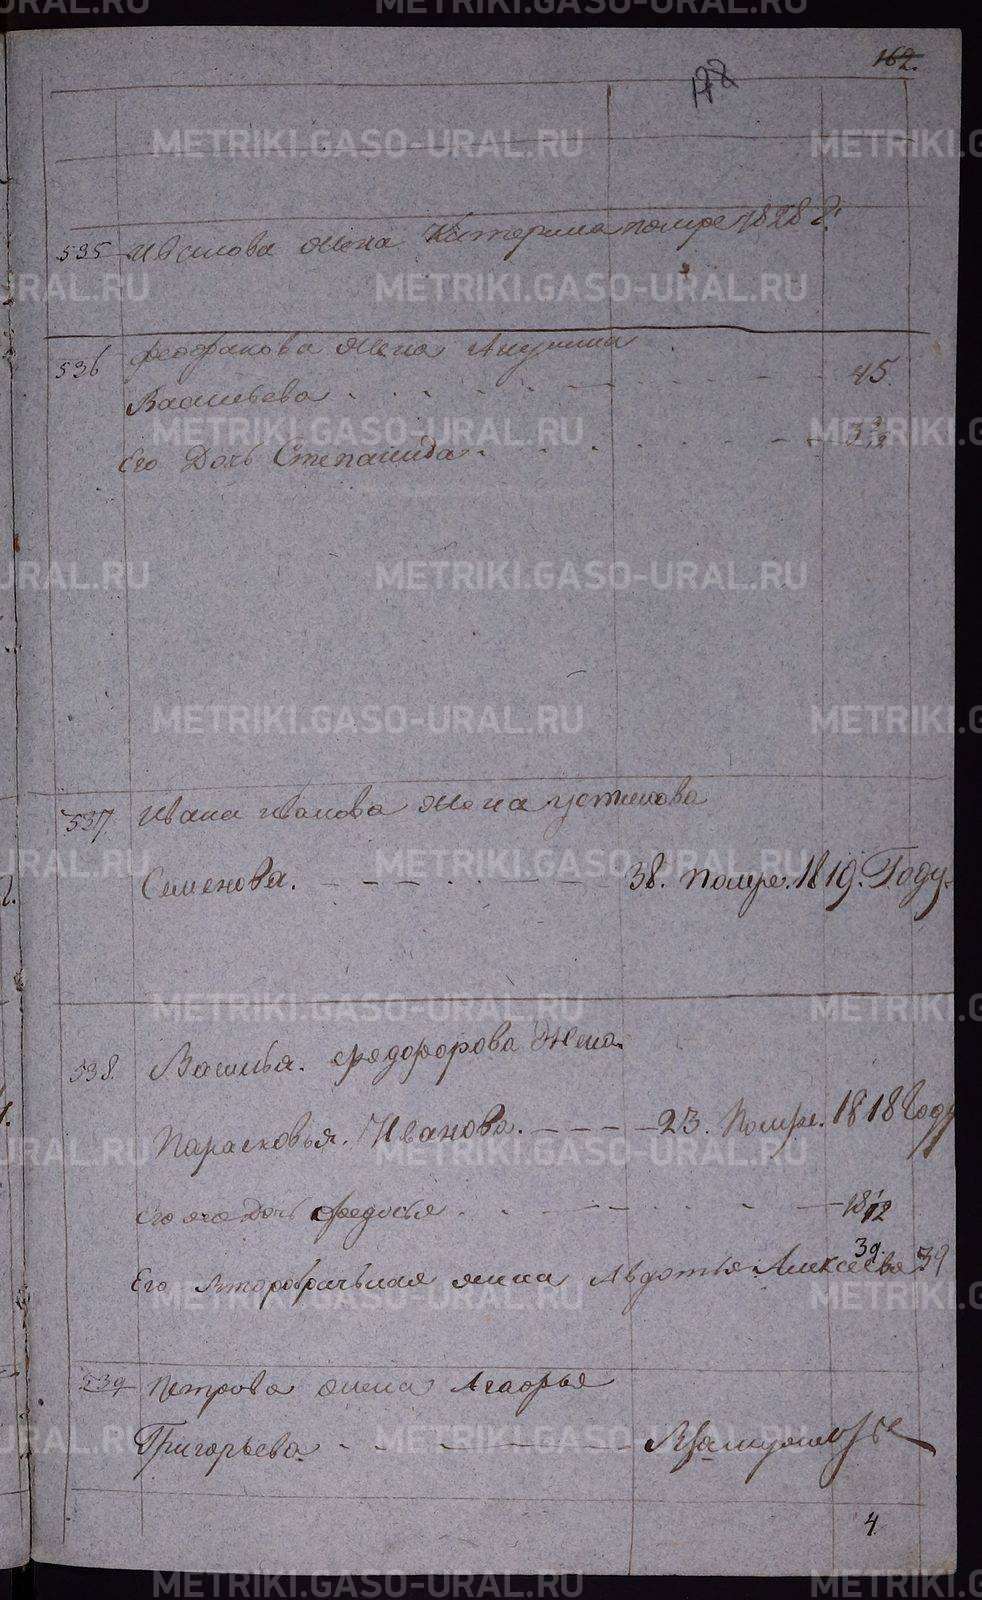 162.
535 Иванова жена Катерина помре 1828 г.
536 Феофанова жена Акулина
Васильева 45
Его Дочь Степанида
537 Ивана Иванова жена Устинова
Семенова. 38. Помре. 1819. Году.
538. Василья. Федоророва Жена.
Парасковья. Иванова. 23. Помре. 1818 Году
Его же Дочь Федосья
39.
Его второбрачьная жена Авдотья Алексеева 39
539 Петрова жена
Григорьева.
4.
METRIKI.GASO-URAL.RU